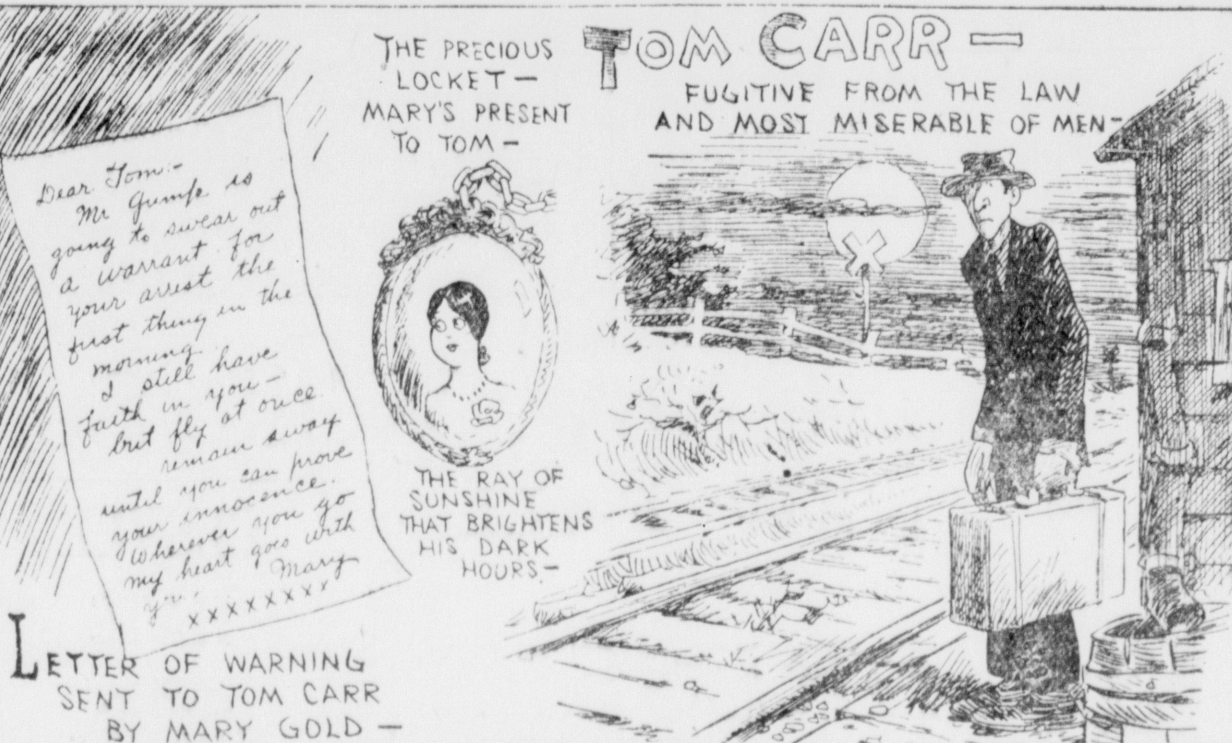 Dear Tom:-
Mr Gump is
going to swear out
a warrant for
your arrest the
first thing in the
morning.
I still have
faith in you—
but fly at once
remain away
until you can prove
your innocence.
Wherever you go
my heart goes with
you.
Mary
xxxxxxxx
LETTER OF WARNING
SENT TO TOM CARR
BY MARY GOLD —
THE PRECIOUS
LOCKET —
MARY'S PRESENT
TO TOM —
THE RAY OF
SUNSHINE
THAT BRIGHTENS
HIS DARK
HOURS —
TOM CARR —
FUGITIVE FROM THE LAW
AND MOST MISERABLE OF MEN —